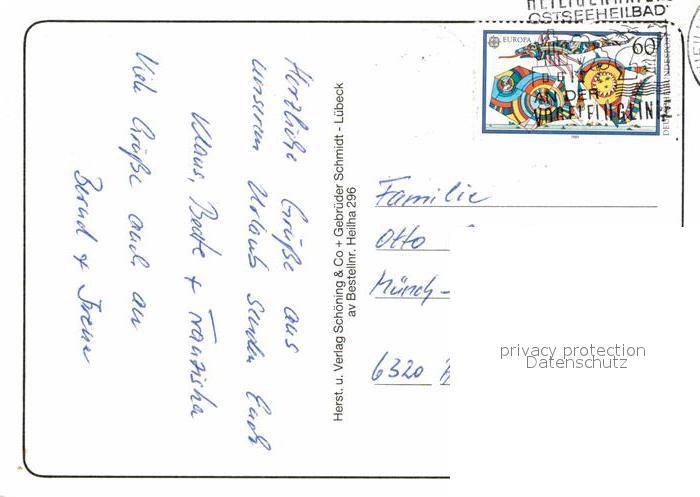 Herzliche Grüße aus
unserem Urlaub senden Euch
Klaus, Beate + Franziska
Viele Grüße auch an
Bernd + Irene
Herst. u. Verlag Schöning & Co + Gebrüder Schmidt - Lübeck
av Bestellnr. Heilha 296
OSTSEEHEILBAD
EUROPA
60
AN DER
VOGELFLUGLINIE
Familie
Otto
Münch-
6320
privacy protection
Datenschutz